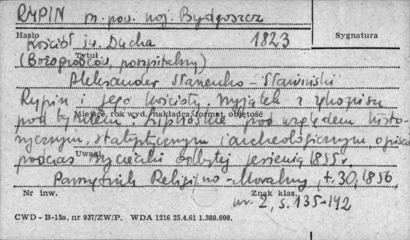 RYPIN m. pow. woj. Bydgoszcz
Hasło
kościół św. Ducha 1823
Sygnatura
(Bożogrobców, poszpitalny)
Tytuł
Aleksander Nanenko-Sławiński
Rypin i jego kościoły. Wyjątek z rękopisu
Miejsce, rok wyd., nakładca, format, objętość
pod tytułem: Lipnoskie pod względem histo-
rycznym, statystycznym i archeologicznym opisane
Uwagi
podczas wycieczki odbytej jesienią 1855 r.
Pamiętnik Religijno-Moralny, t. 30, 1856,
Nr inw.
Znak klas.
nr. 2, s. 135-142
CWD - B-15a, nr 937/ZW/P. WDA 1216 25.4.61 1.380.000.